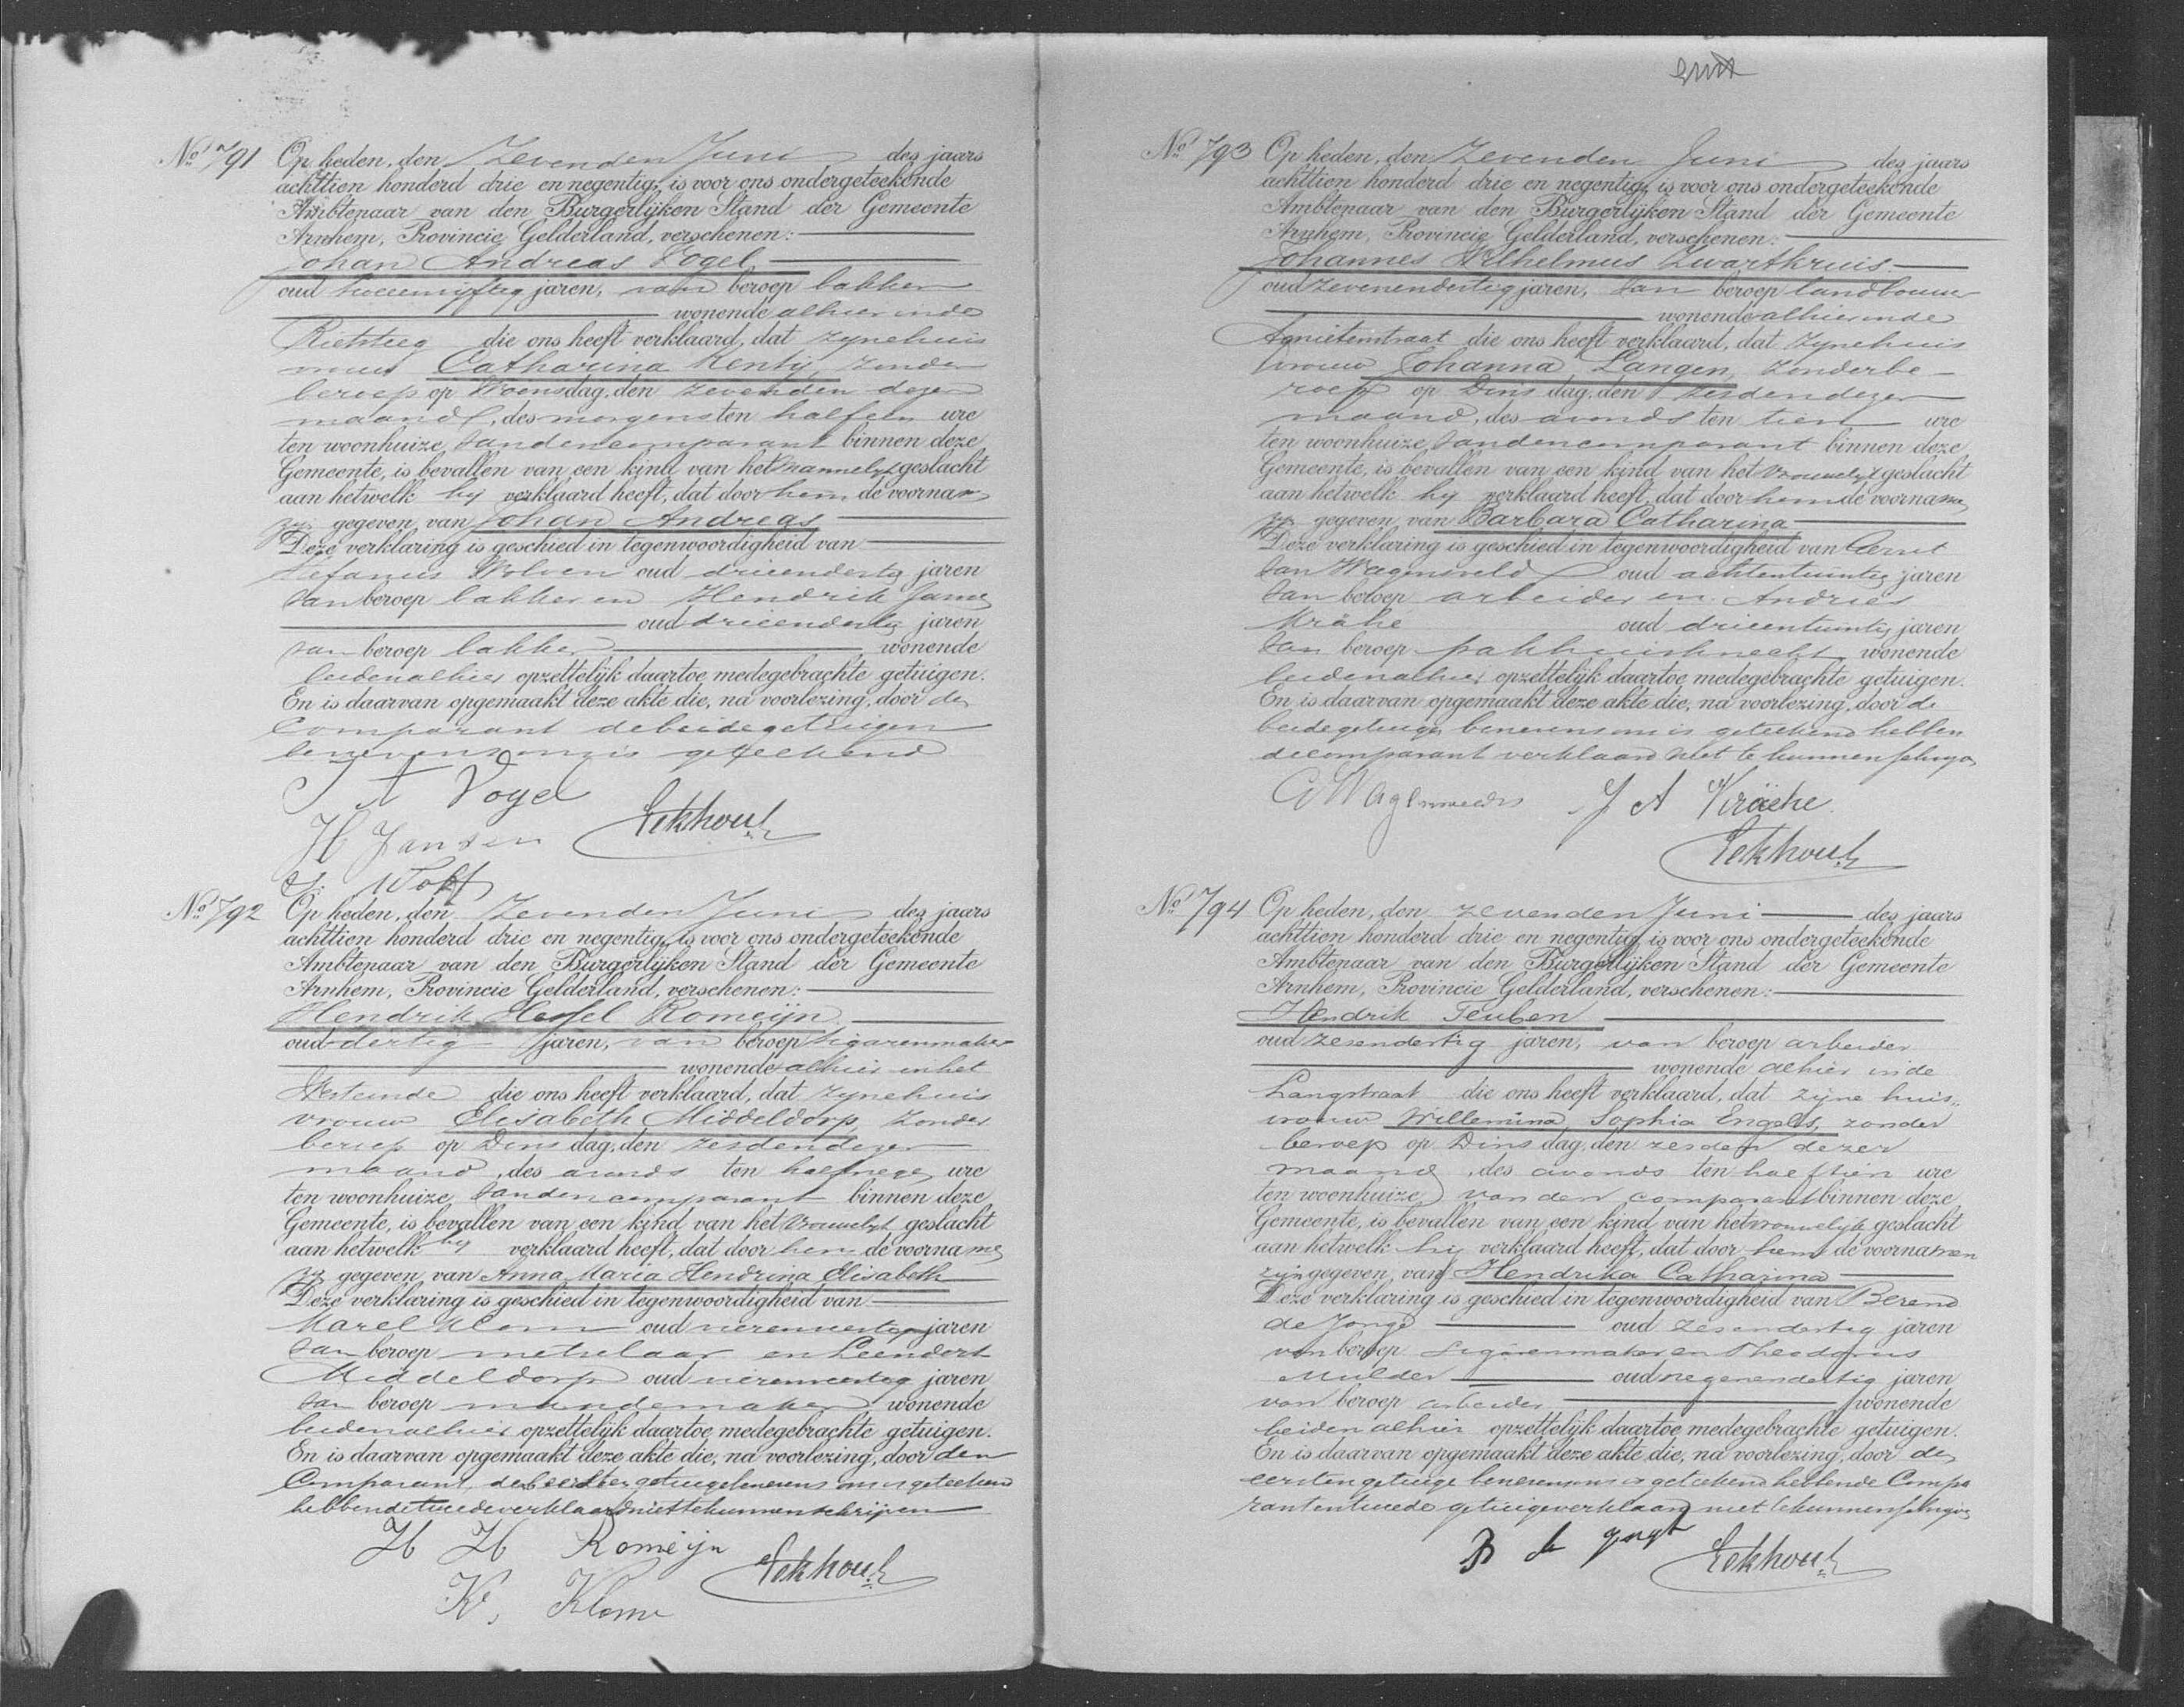 No 791 Op heden, den Zevenden Juni des jaars
achttien honderd drie en negentig, is voor ons ondergeteekende
Ambtenaar van den Burgerlijken Stand der Gemeente
Arnhem, Provincie Gelderland, verschenen:
Johan Andreas Vogel
oud jaren, van beroep bakker
wonende alhier in de
Rietsteeg die ons heeft verklaard, dat zijne huis
vrouw Catharina zonder
beroep op Woensdag, den zevenden dezer
maand, des morgens ten half een ure
ten woonhuize van den comparant binnen deze
Gemeente, is bevallen van een kind van het mannelijk geslacht
aan hetwelk hij verklaard heeft, dat door hem de voornamen
zijn gegeven van Johan Andreas
Deze verklaring is geschied in tegenwoordigheid van
Stefanus oud drieendertig jaren
van beroep bakker en Hendrik
oud drieendertig jaren
van beroep bakker wonende
beiden alhier opzettelijk daartoe medegebrachte getuigen.
En is daarvan opgemaakt deze akte die, na voorlezing, door de
Comparant de beide getuigen
benevens ons is geteekend
J A Vogel
H Jansen Eekhout
No 792 Op heden, den Zevenden Juni des jaars
achttien honderd drie en negentig, is voor ons ondergeteekende
Ambtenaar van den Burgerlijken Stand der Gemeente
Arnhem, Provincie Gelderland, verschenen:
Hendrik Hessel Romeijn
oud dertig jaren, van beroep sigarenmaker
wonende alhier in het
die ons heeft verklaard, dat zijne huis
vrouw Elisabeth Middeldorp, zonder
beroep op Dinsdag, den zesden dezer
maand, des avonds ten half negen ure
ten woonhuize van den comparant binnen deze
Gemeente, is bevallen van een kind van het vrouwelijk geslacht
aan hetwelk hij verklaard heeft, dat door hem de voornamen
zijn gegeven van Anna Maria Hendrina Elisabeth
Deze verklaring is geschied in tegenwoordigheid van
Karel Klom oud vierenveertig jaren
van beroep metselaar en Leendert
Middeldorp oud vierenveertig jaren
van beroep mandemaker wonende
beiden alhier opzettelijk daartoe medegebrachte getuigen.
En is daarvan opgemaakt deze akte die, na voorlezing, door den
Comparant de eersten getuige benevens ons is geteekend
hebbende tweede verklaard niet te kunnen schrijven
H H Romeijn Eekhout
K. Klom
No 793 Op heden, den Zevenden Juni des jaars
achttien honderd drie en negentig, is voor ons ondergeteekende
Ambtenaar van den Burgerlijken Stand der Gemeente
Arnhem, Provincie Gelderland, verschenen:
Johannes Wilhelmus Zwartkruis
oud zevenendertig jaren, van beroep landbouwer
wonende alhier in de
Agnietenstraat die ons heeft verklaard, dat zijne huis
vrouw Johanna Langen, zonder be-
roep op Dinsdag, den zesden dezer
maand, des avonds ten tien ure
ten woonhuize van den comparant binnen deze
Gemeente, is bevallen van een kind van het vrouwelijk geslacht
aan hetwelk hij verklaard heeft, dat door hem de voornamen
zijn gegeven van Barbara Catharina
Deze verklaring is geschied in tegenwoordigheid van Gerrit
van Wagensveld oud achtentwintig jaren
van beroep arbeider en Andries
Krähe oud drieentwintig jaren
van beroep pakhuisknecht wonende
beiden alhier opzettelijk daartoe medegebrachte getuigen.
En is daarvan opgemaakt deze akte die, na voorlezing, door de
beide getuigen benevens ons is geteekend hebbende
de comparant verklaard niet te kunnen schrijven
J A Kräehe
Eekhout
No 794 Op heden, den zevenden Juni des jaars
achttien honderd drie en negentig, is voor ons ondergeteekende
Ambtenaar van den Burgerlijken Stand der Gemeente
Arnhem, Provincie Gelderland, verschenen:
Hendrik Teuben
oud zesendertig jaren, van beroep arbeider
wonende alhier in de
Langstraat die ons heeft verklaard, dat zijne huis„
vrouw Willemina Sophia Engels, zonder
beroep op Dinsdag, den zesden dezer
maand, des avonds ten half tien ure
ten woonhuize van den comparant binnen deze
Gemeente, is bevallen van een kind van het vrouwelijk geslacht
aan hetwelk hij verklaard heeft, dat door hem de voornamen
zijn gegeven van Hendrika Catharina
Deze verklaring is geschied in tegenwoordigheid van Berend
de Jonge oud zesendertig jaren
van beroep sigarenmaker en Theodorus
Mulder oud negenendertig jaren
van beroep arbeider wonende
beiden alhier opzettelijk daartoe medegebrachte getuigen.
En is daarvan opgemaakt deze akte die, na voorlezing, door de
eersten getuige benevens ons is geteekend hebbende Compa
rant en tweede getuige verklaard niet te kunnen schrijven
Eekhout